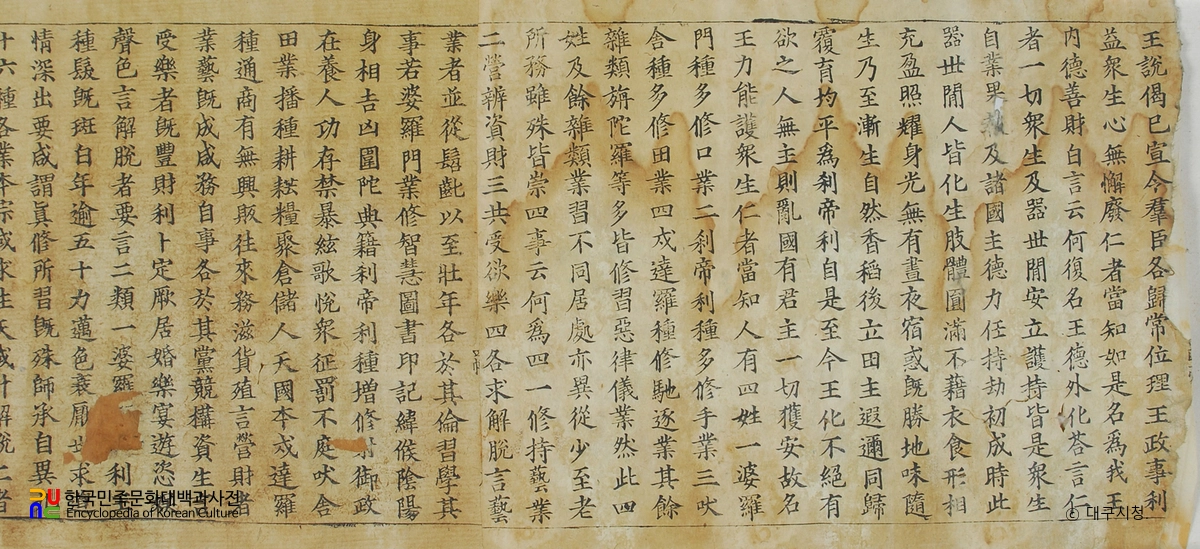 王說偈已宣令羣臣各歸常位理王政事利
益衆生心無懈廢仁者當知如是名爲我王
内德善財白言云何復名王德外化荅言仁
者一切衆生及器世閒安立護持皆是衆生
自業果報及諸國主德力任持劫初成時此
器世閒人皆化生肢體圓滿不藉衣食形相
充盈照耀身光無有晝夜宿惑旣勝地味隨
生乃至漸生自然香稻後立田主遐邇同歸
覆育均平爲刹帝利自是至今王化不絕有
欲之人無主則亂國有君主一切獲安故名
王力能護衆生仁者當知人有四姓一婆羅
門種多修口業二刹帝利種多修手業三吠
舍種多修田業四戍達羅種修馳逐業其餘
雜類旃陀羅等多皆修習惡律儀業然此四
姓及餘雜類業習不同居處亦異從少至老
所務雖殊皆崇四事云何爲四一修持藝業
二營辦資財三共受欲樂四各求解脫言藝
業者並從髫齔以至壯年各於其倫習學其
事若婆羅門業修智慧圖書印記緯候陰陽
身相吉凶圍陀典籍刹帝利種增修射御政
在養人功存禁暴絃歌悅衆征罰不庭吠舍
田業播種耕耘糧聚倉儲人天國本戍達羅
種通商有無興販往來務滋貨殖言營財者
業藝旣成咸務自事各於其黨競構資生
受樂者旣豐財利卜定厥居婚樂宴遊恣
聲色言解脫者要言二類一婆羅 利
種髮旣斑白年逾五十力邁色衰厭世求
情深出要咸謂眞修所習旣殊師承自異
十六種各業本宗或求生天或計解脫二者
한국민족문화대백과사전
Encyclopedia of Korean Culture
© 대구시청